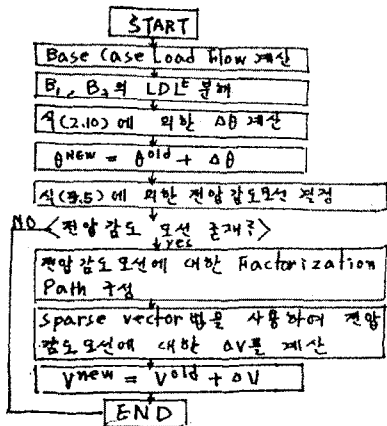 START
Base Case Load Flow 계산
B₁, B₂의 LDLᵗ 분해
식(2.10)에 의한 Δθ 계산
θᴺᴱᵂ = θᵒˡᵈ + Δθ
식(3.5)에 의한 전압감도모선 결정
NO <전압감도 모선 존재?>
yes
전압감도모선에 대한 Factorization
Path 구성
Sparse vector법을 사용하여 전압
감도모선에 대한 ΔV를 계산
Vⁿᵉʷ = Vᵒˡᵈ + ΔV
END